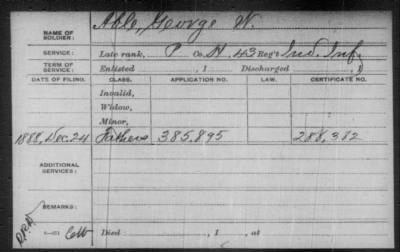 NAME OF SOLDIER: Able, George W.
SERVICE: Late rank, P Co. H, 43 Reg't Ind. Inf.
TERM OF SERVICE: Enlisted , 1 Discharged , 1
DATE OF FILING. CLASS. APPLICATION NO. LAW. CERTIFICATE NO.
Invalid,
Widow,
Minor,
1888, Dec. 24 Fathers 385,895 288,382
ADDITIONAL SERVICES:
REMARKS:
Died , 1 , at